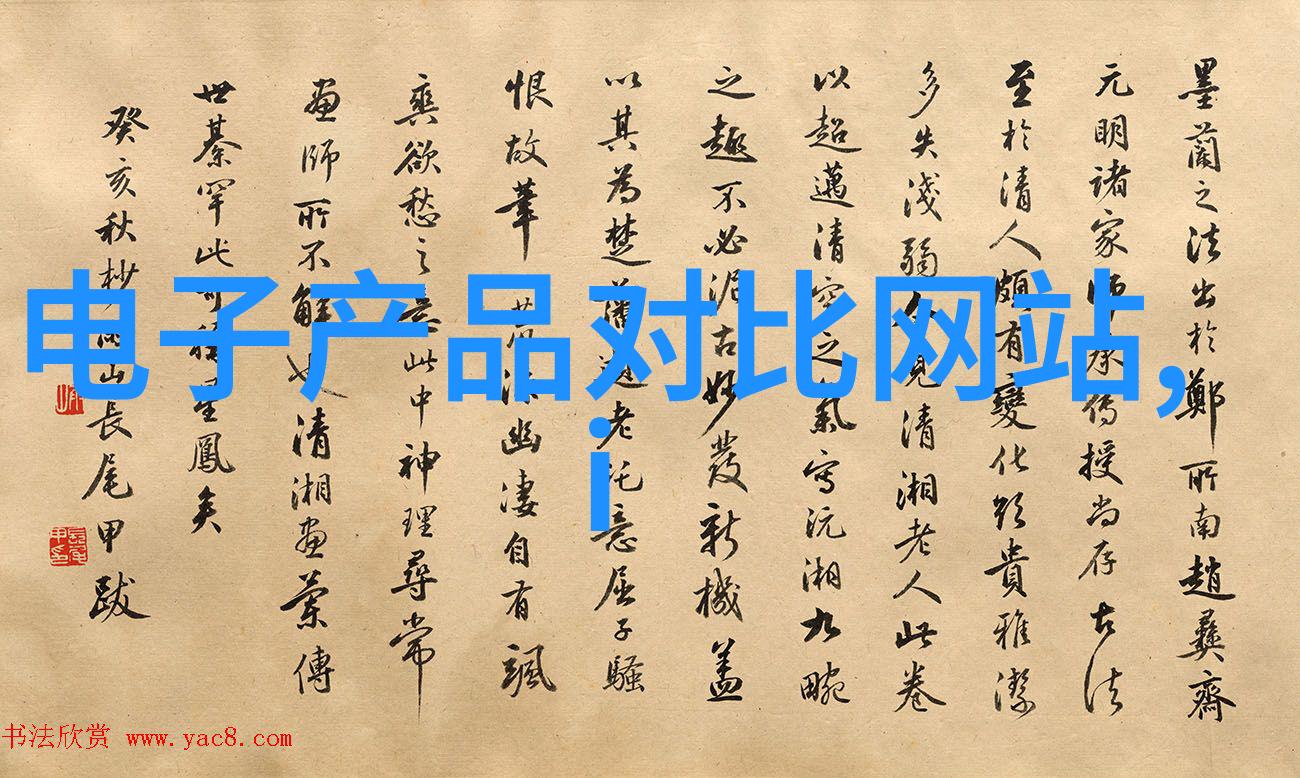 墨蘭之法出於鄭所南趙彝齋
元明諸家師承傳授尚存古法
至於清人頗有變化貴雅潔
多失淺弱今見清湘老人此卷
以超邁清空之氣寫沅湘九畹
之趣不必泥古妙發新機蓋
以其為楚藩遺老託意屈子騷
恨故筆深幽淒自有颯
爽欲愁之意此中神理尋常
画師所不解也清湘画蘭傳
世綦罕此可稱星鳳矣
癸亥秋杪雨山長尾甲跋
电子产品对比网站,
i
书法欣赏 www.yac8.com